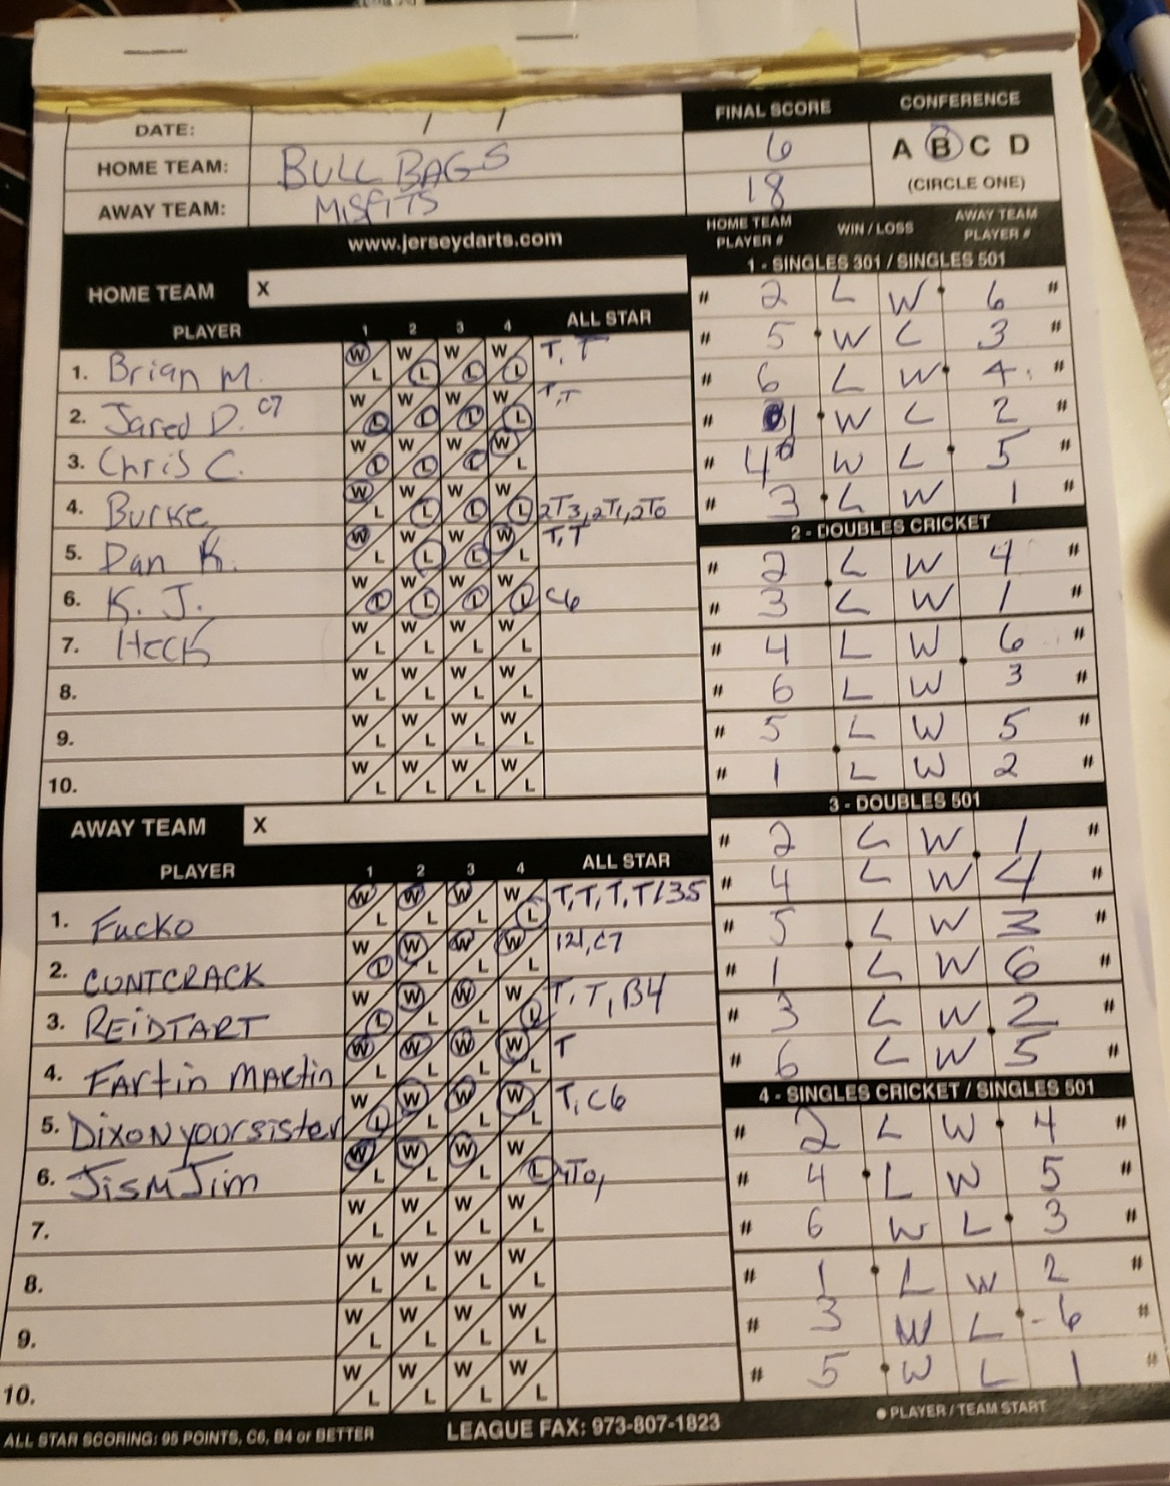 DATE: / /
HOME TEAM: BULL BAGS
AWAY TEAM: MISFITS
FINAL SCORE
6
18
CONFERENCE
A B C D
(CIRCLE ONE)
www.jerseydarts.com
HOME TEAM X
PLAYER 1 2 3 4 ALL STAR
1. Brian M. W L W L W L W L T, T
2. Jared D. C7 W L W L W L W L T, T
3. Chris C. W L W L W L W L
4. Burke W L W L W L W L 2T3, 2T1, 2T0
5. Dan K. W L W L W L W L T, T
6. K. J. W L W L W L W L C6
7. Heck W L W L W L W L
8. W L W L W L W L
9. W L W L W L W L
10. W L W L W L W L
AWAY TEAM X
PLAYER 1 2 3 4 ALL STAR
1. Fucko W L W L W L W L T, T, T, T/135
2. CUNTCRACK W L W L W L W L 121, C7
3. REIDTART W L W L W L W L T, T, B4
4. FARtin MARtin W L W L W L W L T
5. DixoN yoursister W L W L W L W L T, C6
6. JisM Jim W L W L W L W L
7. W L W L W L W L
8. W L W L W L W L
9. W L W L W L W L
10. W L W L W L W L
HOME TEAM PLAYER # WIN / LOSS AWAY TEAM PLAYER #
1 - SINGLES 301 / SINGLES 501
# 2 L W 6 #
# 5 W L 3 #
# 6 L W 4 #
# 1 W L 2 #
# 4 W L 5 #
# 3 L W 1 #
2 - DOUBLES CRICKET
# 2 L W 4 #
# 3 L W 1 #
# 4 L W 6 #
# 6 L W 3 #
# 5 L W 5 #
# 1 L W 2 #
3 - DOUBLES 501
# 2 L W 1 #
# 4 L W 4 #
# 5 L W 3 #
# 1 L W 6 #
# 3 L W 2 #
# 6 L W 5 #
4 - SINGLES CRICKET / SINGLES 501
# 2 L W 4 #
# 4 L W 5 #
# 6 W L 3 #
# 1 L W 2 #
# 3 W L 6 #
# 5 W L 1 #
ALL STAR SCORING: 95 POINTS, C6, B4 or BETTER
LEAGUE FAX: 973-807-1823
PLAYER / TEAM START